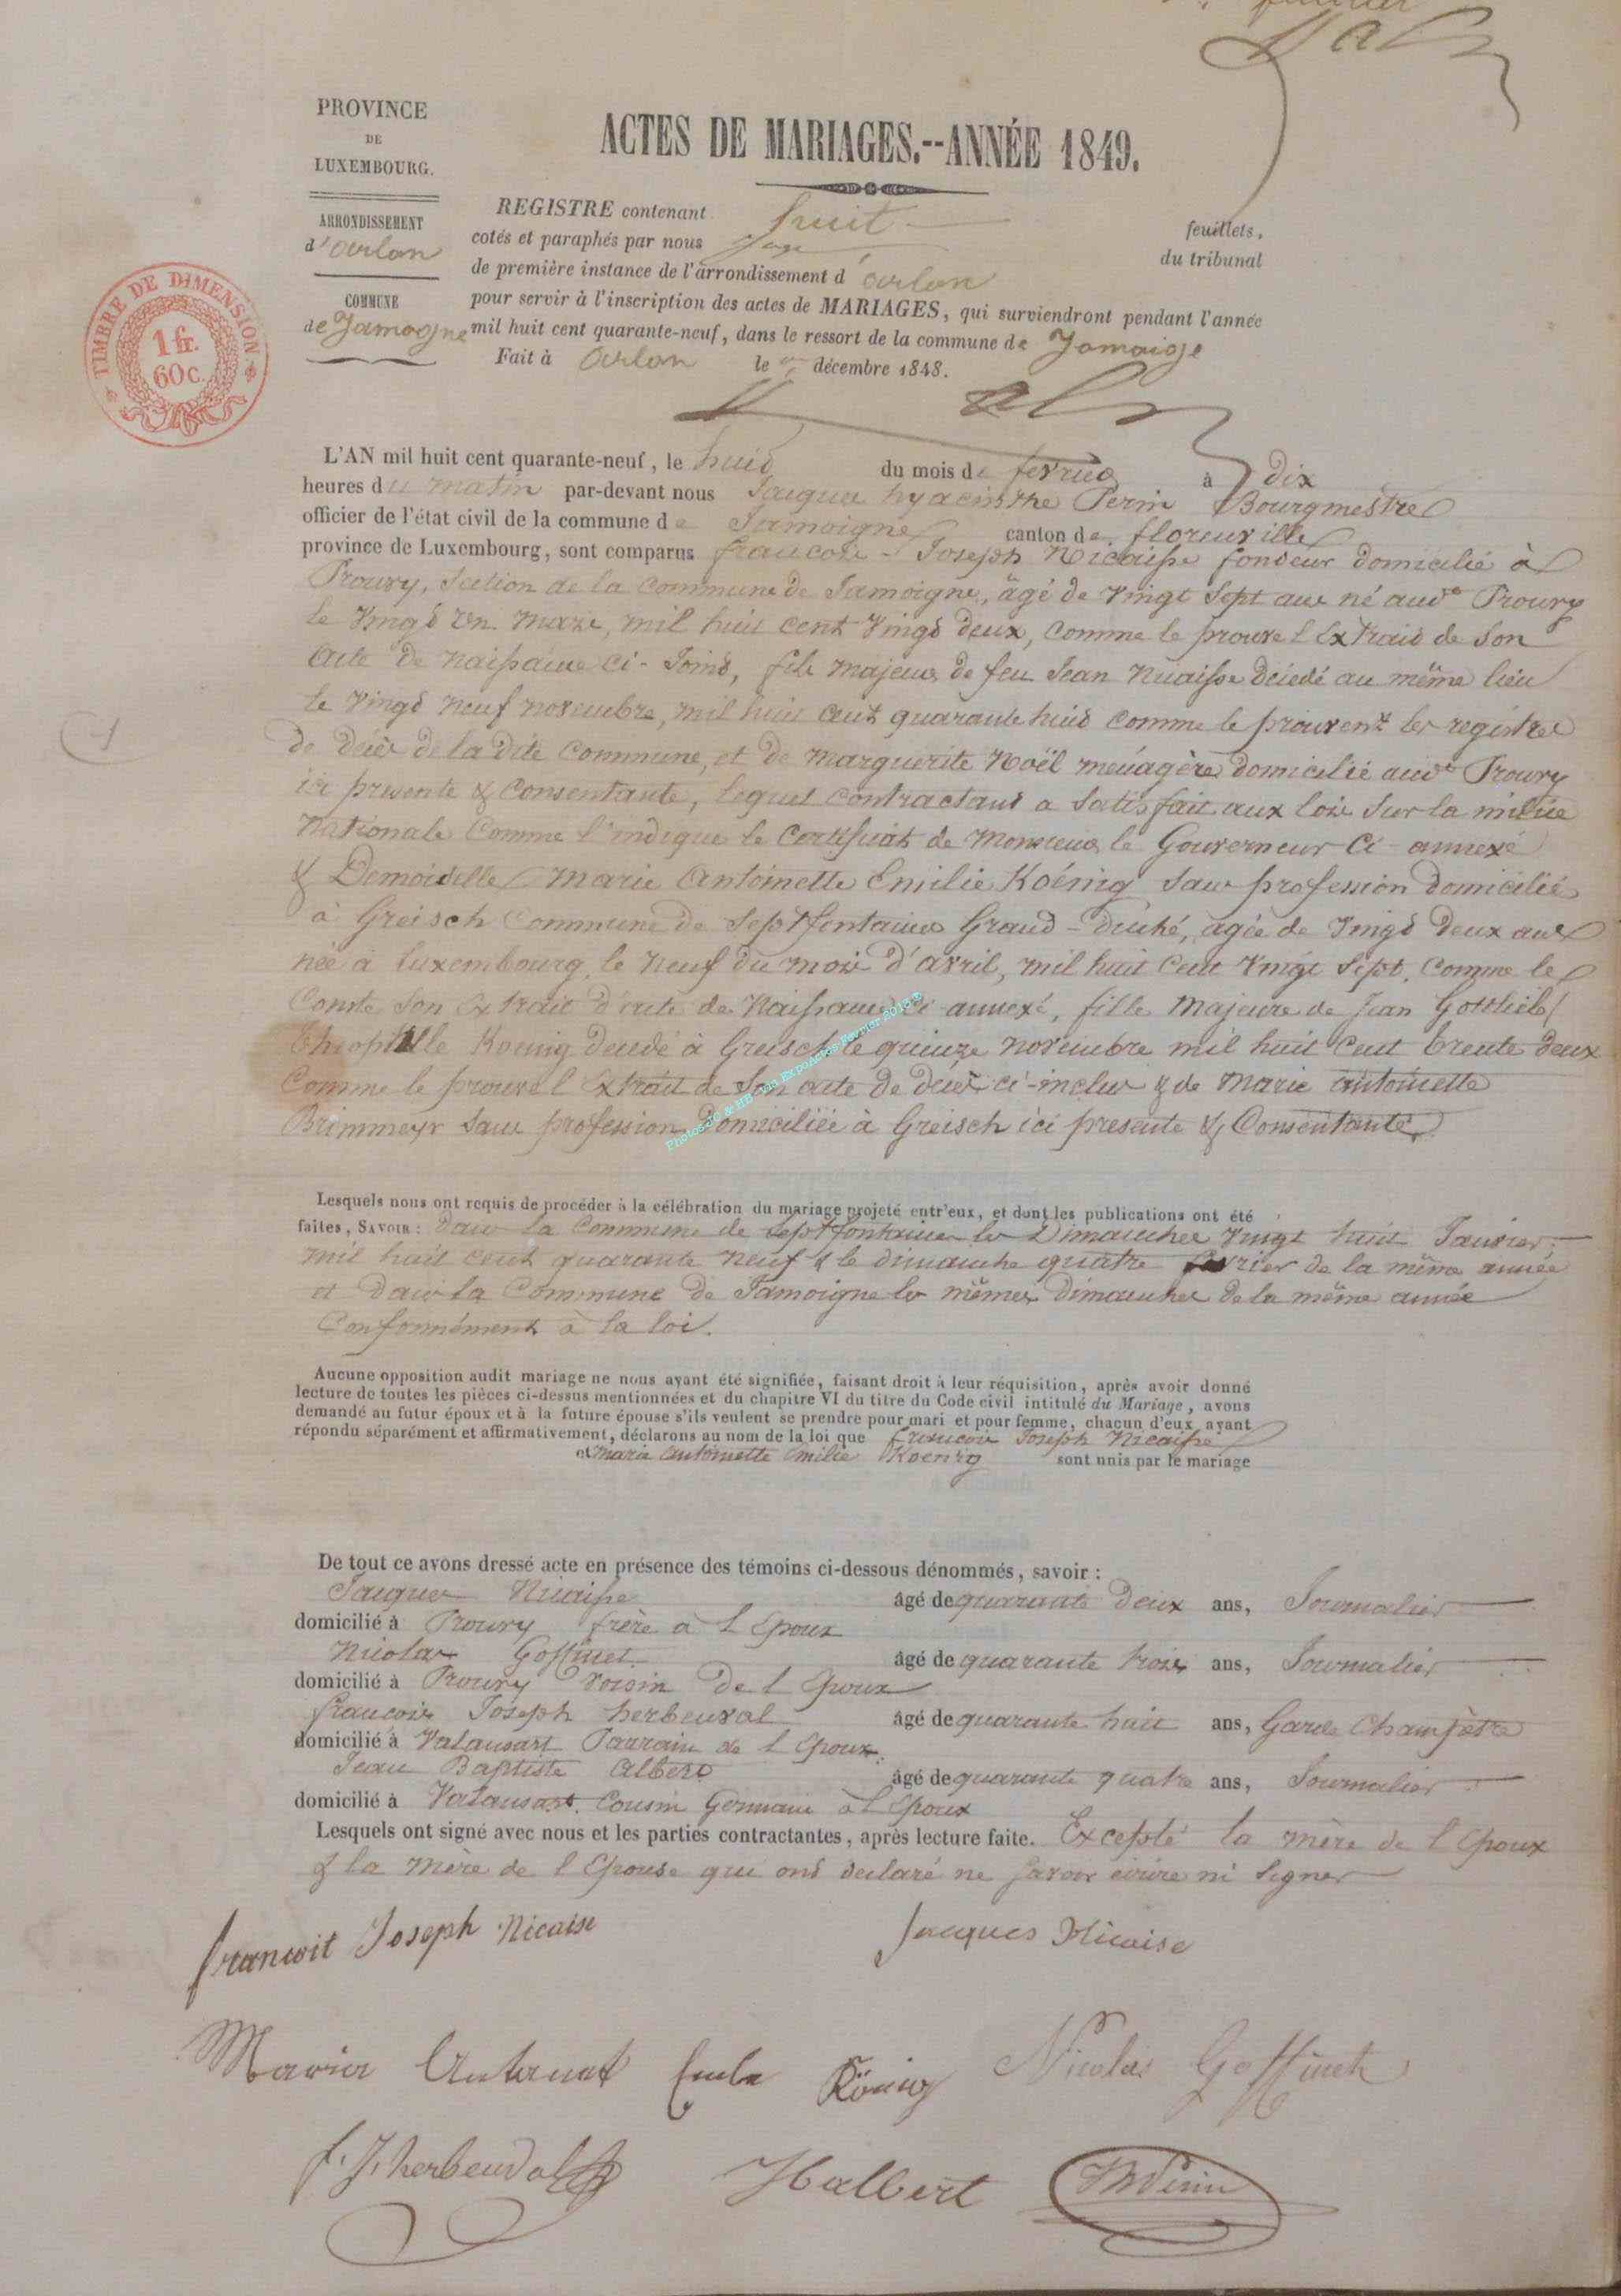 PROVINCE
DE
LUXEMBOURG.
ARRONDISSEMENT
d'arlon
COMMUNE
de Jamoigne
TIMBRE DE DIMENSION
1 fr.
60 c.
ACTES DE MARIAGES.--ANNÉE 1849.
REGISTRE contenant huit feuillets,
cotés et paraphés par nous Juge du tribunal
de première instance de l'arrondissement d'arlon
pour servir à l'inscription des actes de MARIAGES, qui surviendront pendant l'année
mil huit cent quarante-neuf, dans le ressort de la commune de Jamoigne
Fait à arlon le décembre 1848.
L'AN mil huit cent quarante-neuf, le huit du mois de fevrier à dix
heures du matin par-devant nous Jacques hyacinthe Perin Bourgmestre
officier de l'état civil de la commune de Jamoigne canton de florenville
province de Luxembourg, sont comparus francois - Joseph Nicaisse fondeur domicilié à
Prouvy, Section de la Commune de Jamoigne, âgé de vingt Sept ans né audt Prouvy
le Vingt un Mars, mil huit cent vingt deux, Comme le prouve l'Extrait de Son
acte de Naissance Ci-Joint, fils majeur de feu Jean Nicaisse décédé au même lieu
le Vingt neuf novembre, mil huit cent quarante huit comme le prouvent les registres
de décès de la dite Commune, et de Marguerite Noël ménagère domiciliée audt Prouvy
ici presente & Consentante, lequel Contractant a Satisfait aux lois Sur la milice
Nationale Comme l'indique le Certificat de Monsieur le Gouverneur Ci-annexé
& Demoiselle Marie Antoinette Emilie Koénig Sans profession domiciliée
à Greisch Commune de Septfontaines Grand-Duché, agée de Vingt Deux ans
née à Luxembourg, le Neuf du mois d'avril, mil huit Cent Vingt Sept, Comme le
Conste Son Extrait d'acte de Naissance Ci-annexé, fille Majeure de Jean Gottlieb
Théophille Koenig decedé à Greisch le quinze novembre mil huit Cent trente deux
Comme le prouve l'Extrait de Son acte de décès ci-inclus & de Marie antoinette
Brimmeyr Sans profession Domiciliée à Greisch ici presente & Consentante
Photos JC & HB Via ExpoActes Février 2016 ®
Lesquels nous ont requis de procéder à la célébration du mariage projeté entr'eux, et dont les publications ont été
faites, SAVOIR : Dans la Commune de Septfontaines les Dimanches Vingt huit Janvier
mil huit cent quarante neuf & le dimanche quatre fevrier de la même année
et Dans la Commune de Jamoigne les mêmes Dimanches de la même année
Conformément à la loi.
Aucune opposition audit mariage ne nous ayant été signifiée, faisant droit à leur réquisition, après avoir donné
lecture de toutes les pièces ci-dessus mentionnées et du chapitre VI du titre du Code civil intitulé du Mariage, avons
demandé au futur époux et à la future épouse s'ils veulent se prendre pour mari et pour femme, chacun d'eux ayant
répondu séparément et affirmativement, déclarons au nom de la loi que francois Joseph Nicaisse
et Marie Antoinette Emilie Koenig sont unis par le mariage
De tout ce avons dressé acte en présence des témoins ci-dessous dénommés, savoir :
Jacques Nicaisse âgé de quarante Deux ans, Journalier
domicilié à Prouvy frère à l'Epoux
Nicolas Goffinet âgé de quarante trois ans, Journalier
domicilié à Prouvy voisin De l'Epoux
francois Joseph herbeuval âgé de quarante huit ans, Garde Champêtre
domicilié à Valansart Parrain de l'Epoux
Jean Baptiste Albert âgé de quarante quatre ans, Journalier
domicilié à Valansart. Cousin Germain à l'Epoux
Lesquels ont signé avec nous et les parties contractantes, après lecture faite. Excepté la mère de l'Epoux
& la mère de l'Epouse qui ont declaré ne savoir écrire ni Signer
francoit Joseph Nicaise
Jacques Nicaise
Maria Antonet Emle König
Nicolas Goffinet
f. J. herbeuval
JBalbert
JHPerin